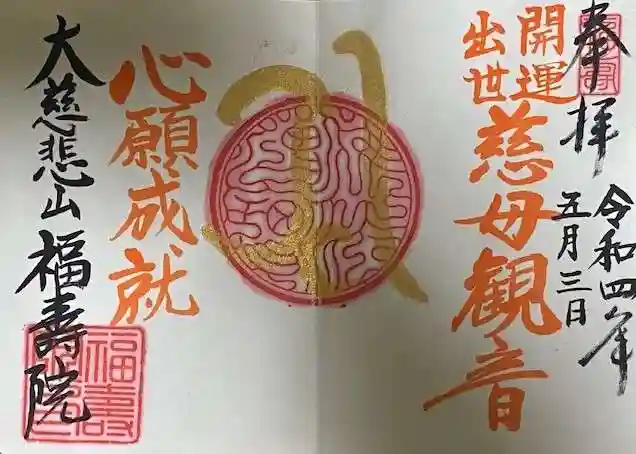 奉拝
令和四年
五月三日
開運
出世
慈母観音
心願成就
大慈悲山福壽院
福壽